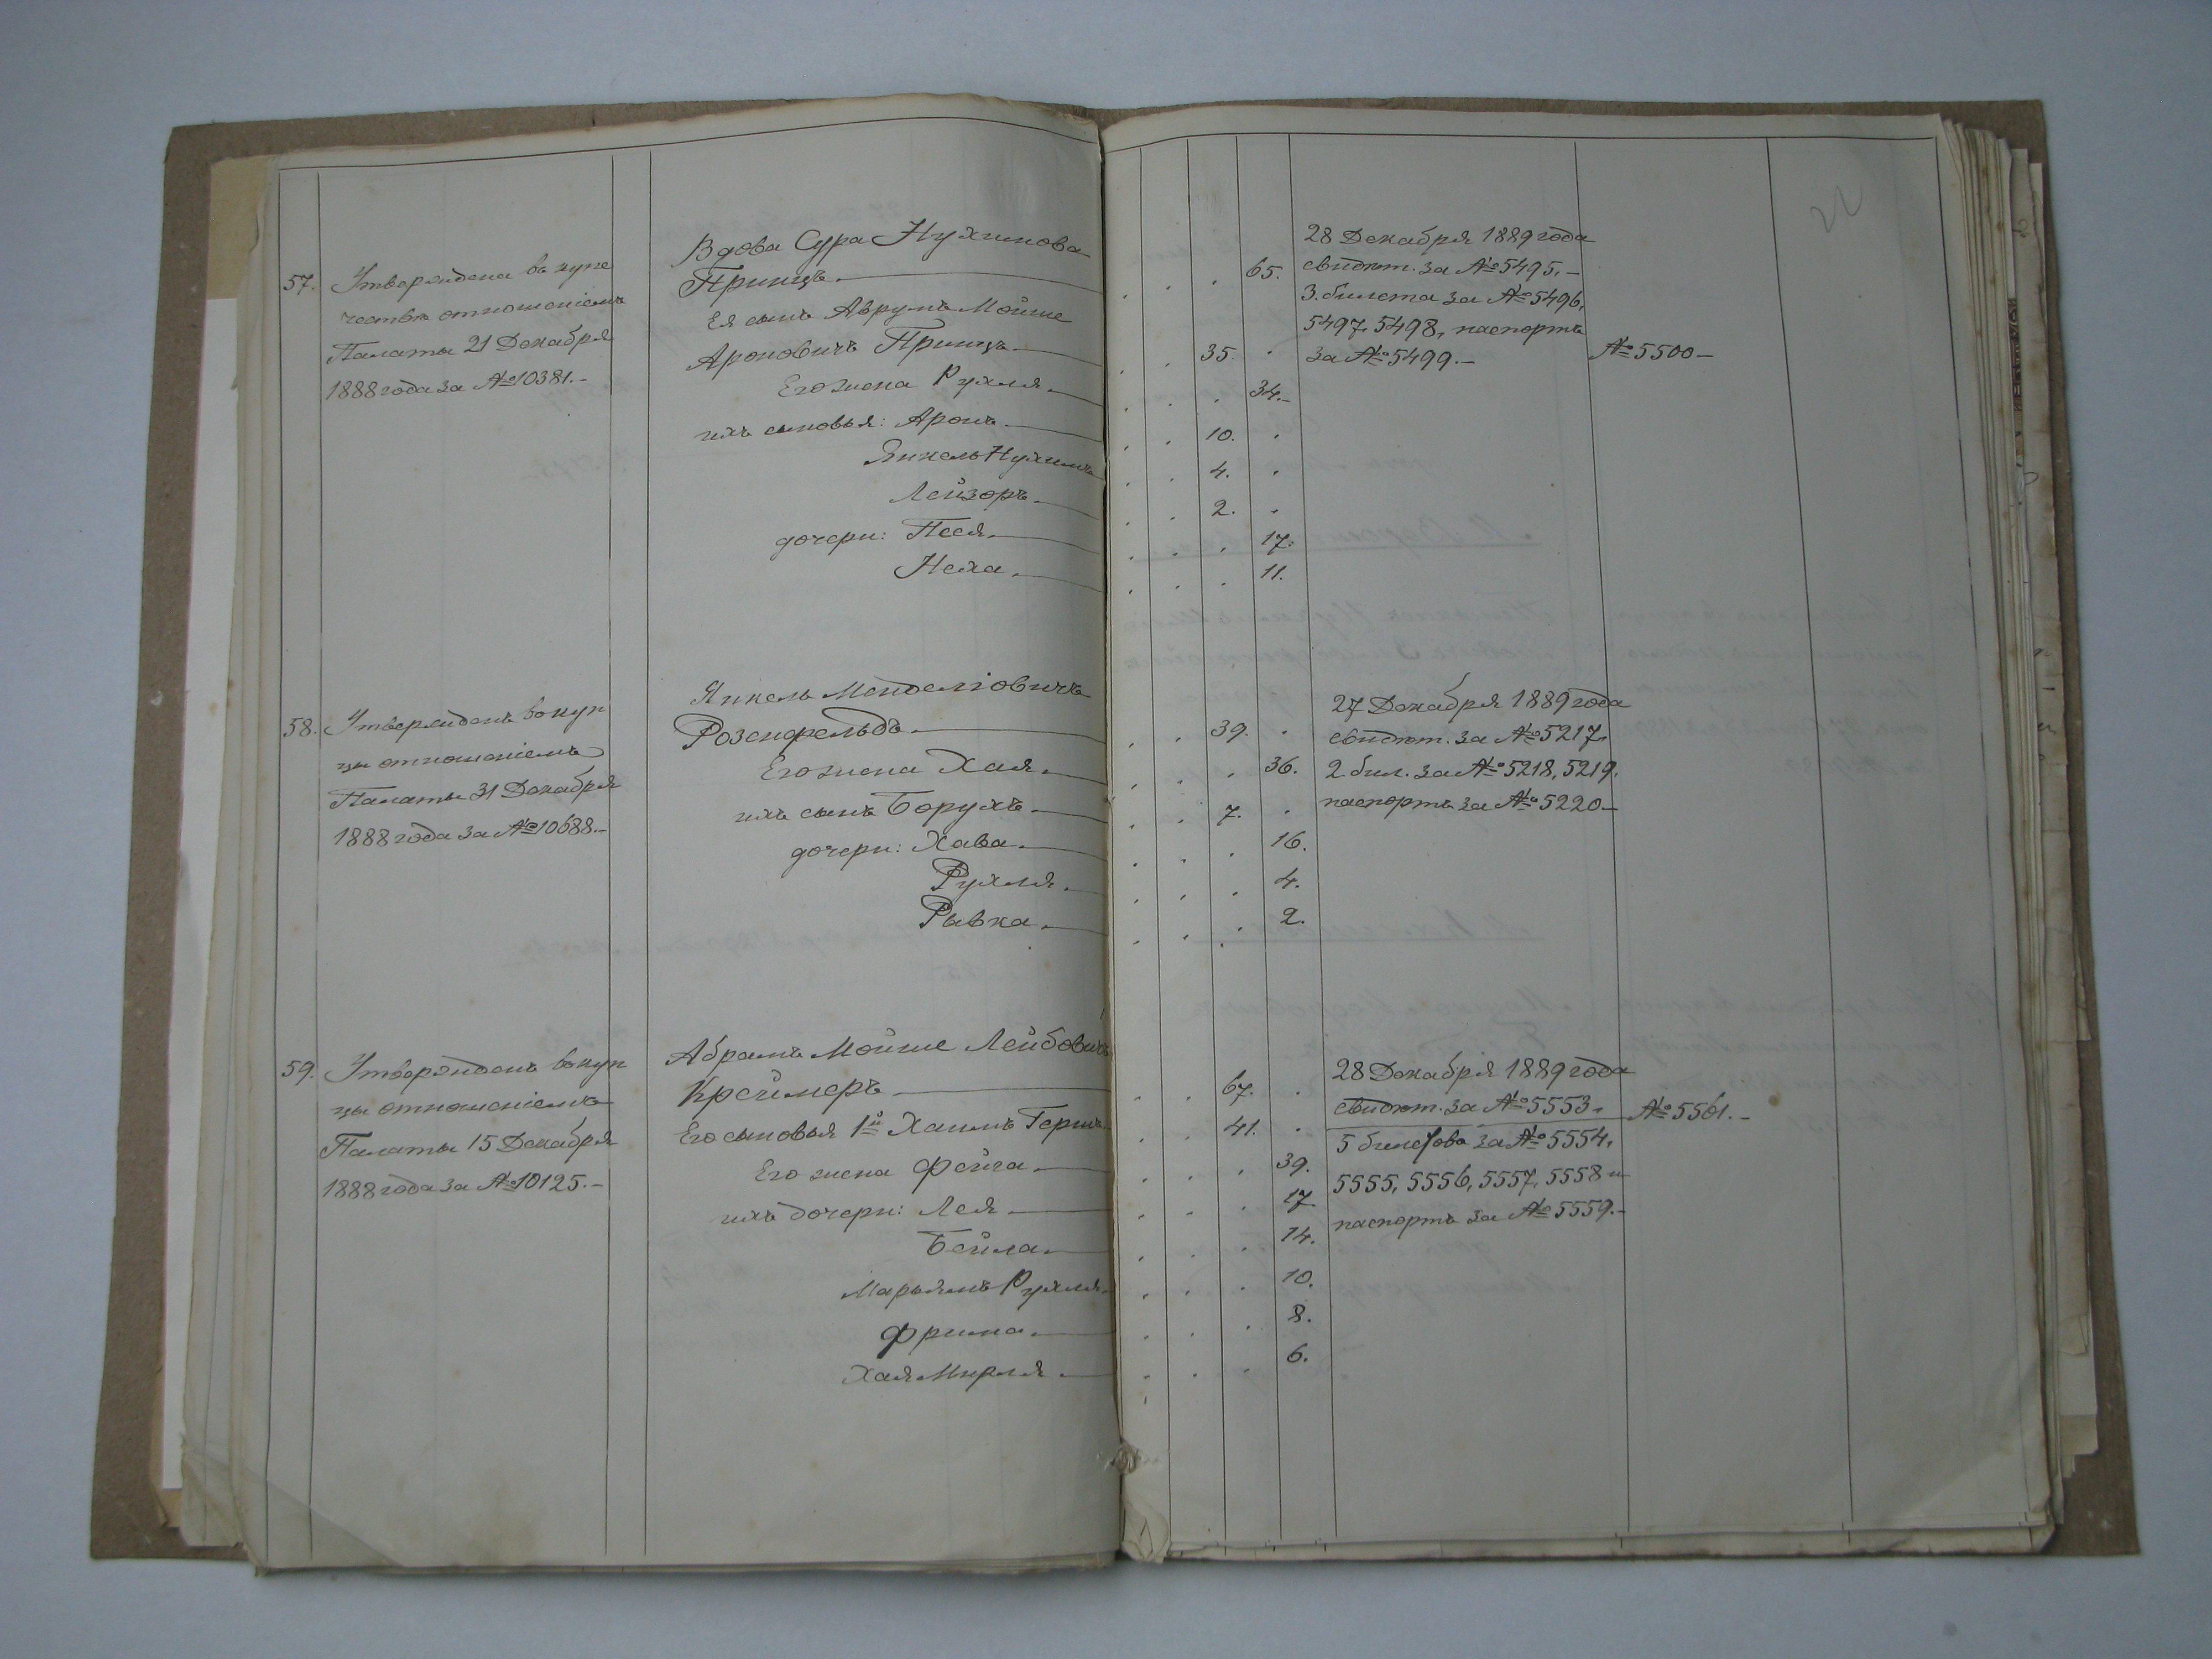 57. Утверждена въ купе
чество отношеніемъ
Палаты 21 Декабря
1888 года за № 10381.-
Вдова Сура Нухимова
Принцъ. 65.
Ея сынъ Аврумъ Мойше
Ароновичъ Принцъ 35.
Его жена Рухля. 34.-
ихъ сыновья: Аронъ 10.
Янкель Нухимъ 4.
Лейзоръ. 2.
дочери: Песя. 17.
Неха. 11.
28 Декабря 1889 года
свидѣт. за № 5495.-
3. билета за № 5496,
5497, 5498, паспортъ
за № 5499.-
№ 5500-
22
58. Утвержденъ въ куп
цы отношеніемъ
Палаты 31 Декабря
1888 года за № 10688.-
Янкель Менделіовичъ
Розенфельдъ. 39.
Его жена Хая. 36.
ихъ сынъ Борухъ. 7.
дочери: Хава. 16.
Рухля. 4.
Рывка. 2.
27 Декабря 1889 года
свидѣт. за № 5217.
2. бил. за № 5218, 5219.
паспортъ за № 5220-
59. Утвержденъ въ куп
цы отношеніемъ
Палаты 15 Декабря
1888 года за № 10125.-
Абрамъ Мойше Лейбовичъ
Креймеръ 67.
Его сыновья 1й Хаимъ Гершъ. 41.
Его жена Фейга. 39.
ихъ дочери: Лея 17.
Бейла. 14.
Марьямъ Рухля. 10.
Фрима. 8.
Хая Мирля. 6.
28 Декабря 1889 года
свидѣт. за № 5553.
5 билетовъ за № 5554,
5555, 5556, 5557, 5558 и
паспортъ за № 5559.-
№ 5561.-